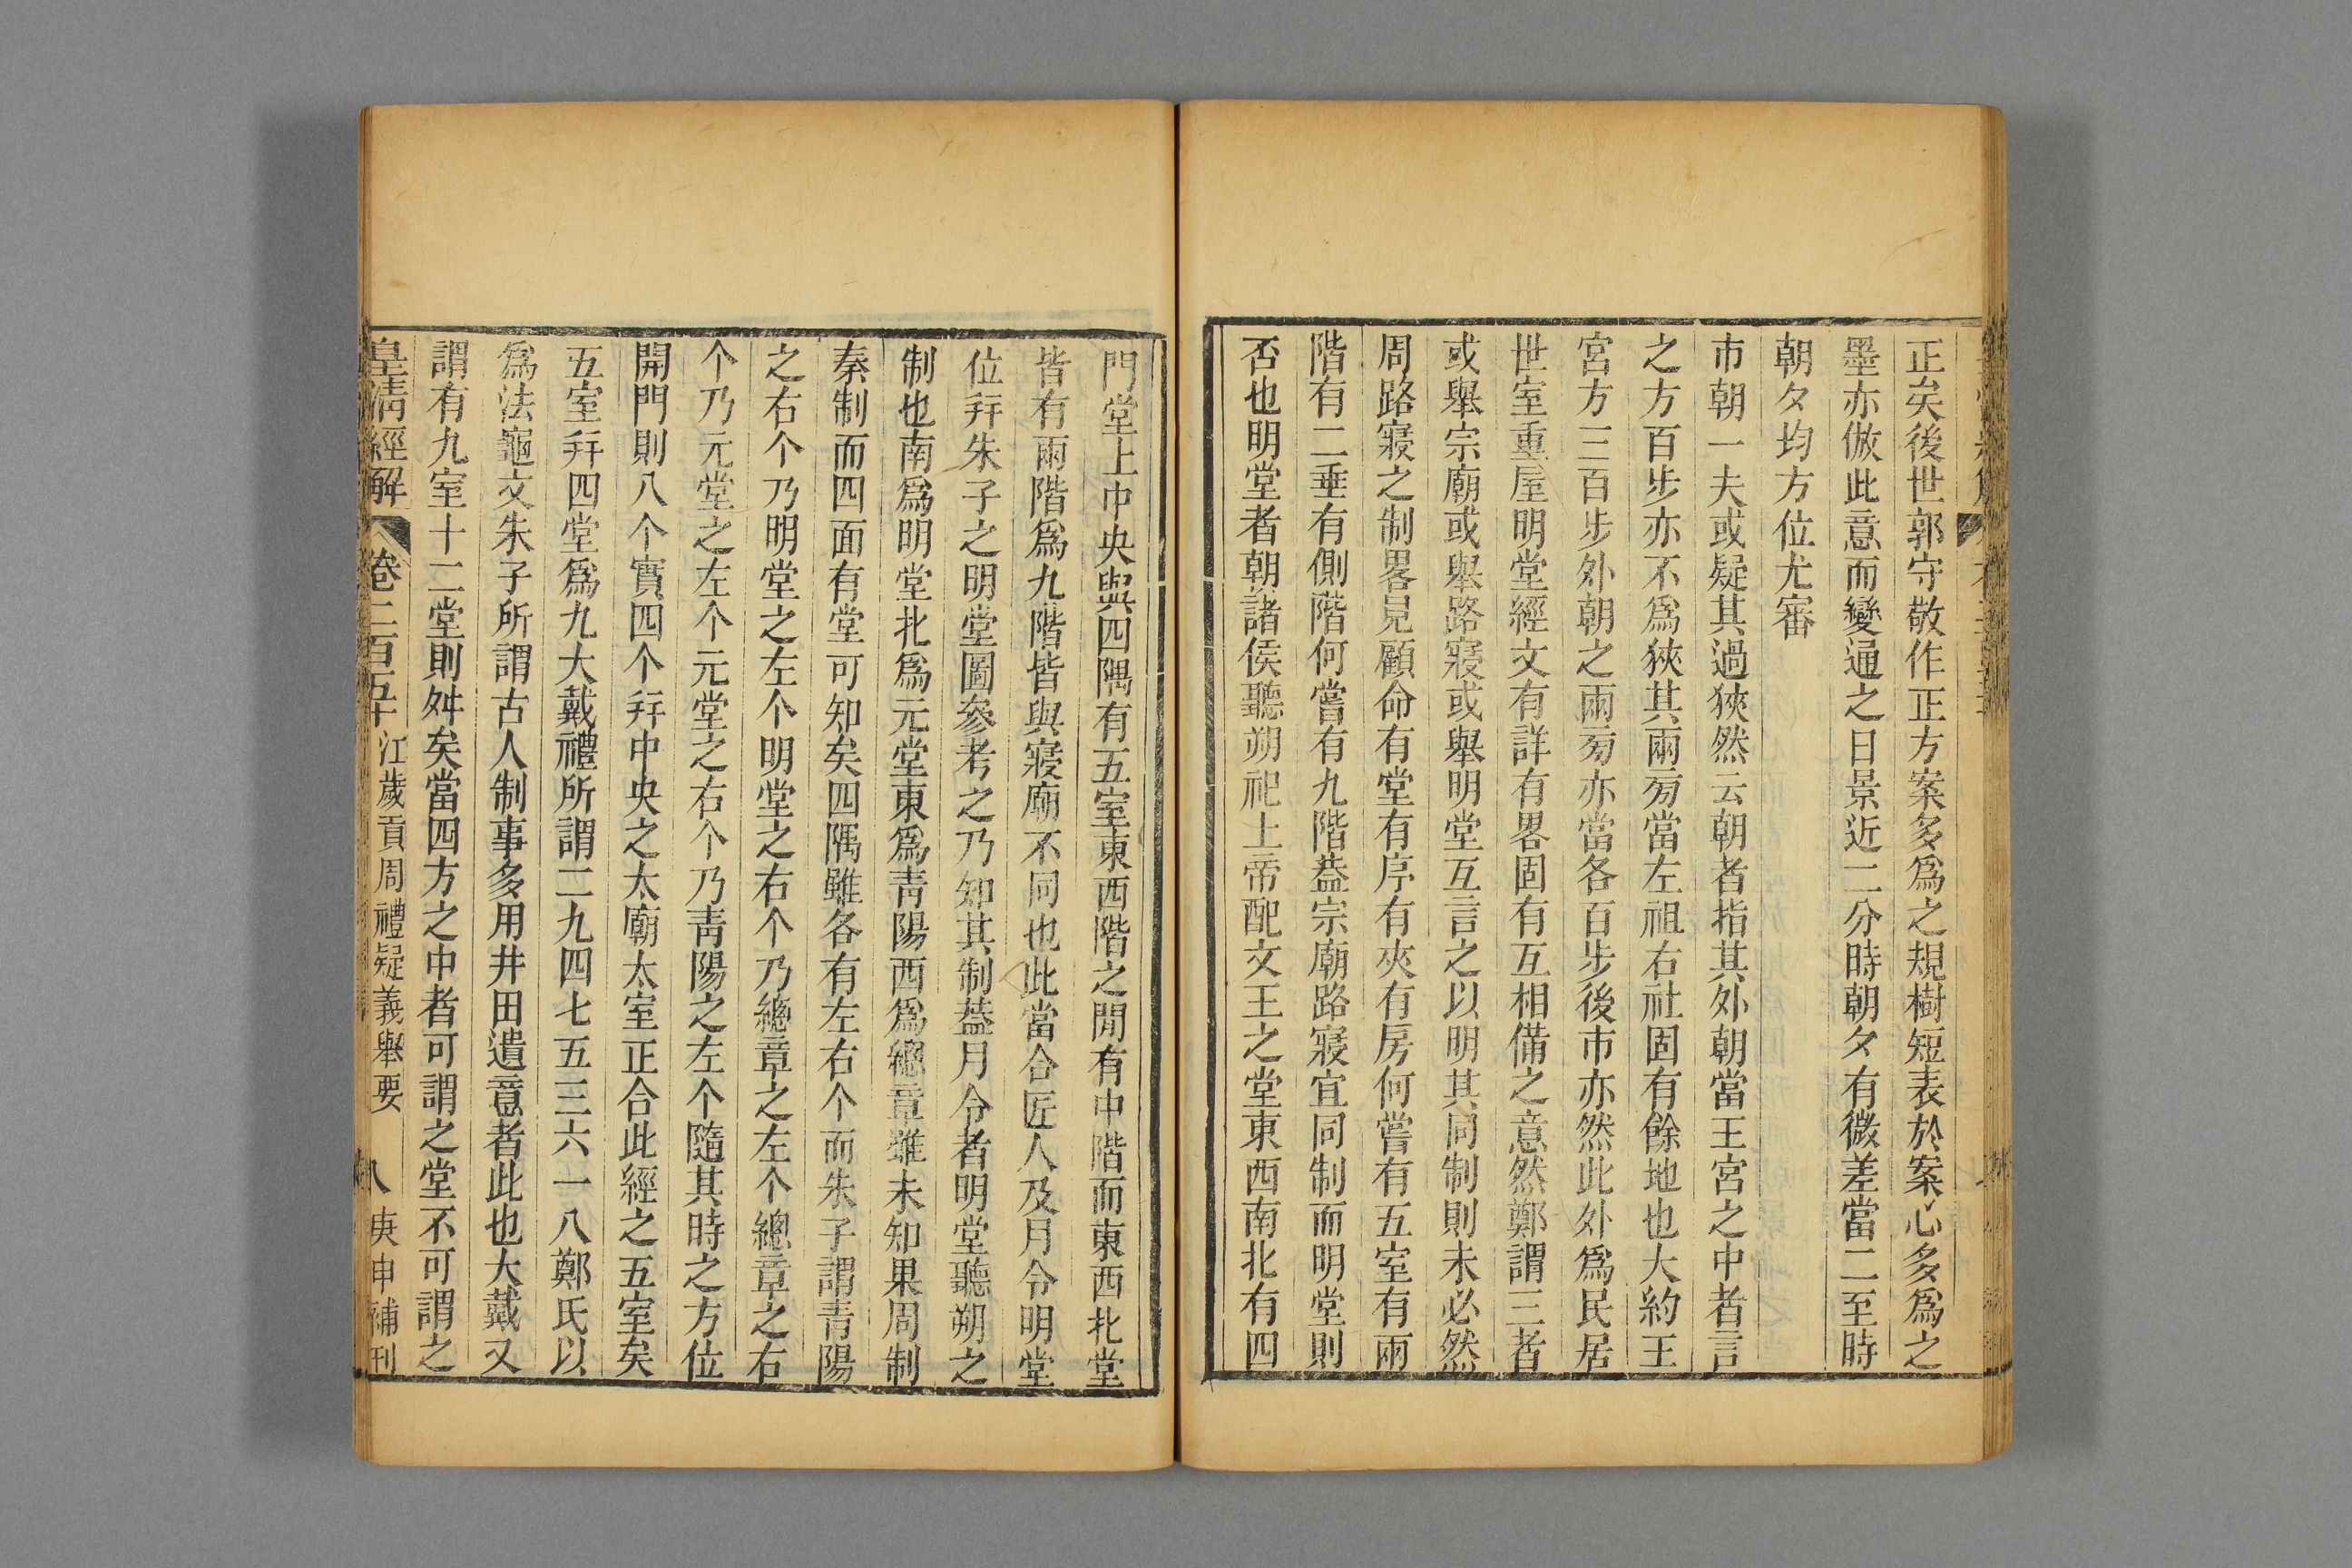 正矣後世郭守敬作正方案多爲之規樹短表於案心多爲之
墨亦倣此意而變通之日景近二分時朝夕有微差當二至時
朝夕均方位尤審
市朝一夫或疑其過狹然云朝者指其外朝當王宮之中者言
之方百步亦不爲狹其兩旁當左祖右社固有餘地也大約王
宮方三百步外朝之兩旁亦當各百步後市亦然此外爲民居
世室重屋明堂經文有詳有畧固有互相備之意然鄭謂三者
或舉宗廟或舉路寢或舉明堂互言之以明其同制則未必然
周路寢之制畧見顧命有堂有序有夾有房何嘗有五室有兩
階有二垂有側階何嘗有九階葢宗廟路寢宜同制而明堂則
否也明堂者朝諸侯聽朔祀上帝配文王之堂東西南北有四
門堂上中央與四隅有五室東西階之閒有中階而東西北堂
皆有兩階爲九階皆與寢廟不同也此當合匠人及月令明堂
位幷朱子之明堂圖參考之乃知其制葢月令者明堂聽朔之
制也南爲明堂北爲元堂東爲靑陽西爲總章雖未知果周制
秦制而四面有堂可知矣四隅雖各有左右个而朱子謂靑陽
之右个乃明堂之左个明堂之右个乃總章之左个總章之右
个乃元堂之左个元堂之右个乃靑陽之左个隨其時之方位
開門則八个實四个幷中央之太廟太室正合此經之五室矣
五室幷四堂爲九大戴禮所謂二九四七五三六一八鄭氏以
爲法龜文朱子所謂古人制事多用井田遺意者此也大戴又
謂有九室十二堂則舛矣當四方之中者可謂之堂不可謂之
皇淸經解 卷二百五十 江歲貢周禮疑義舉要 八 庚申補刊